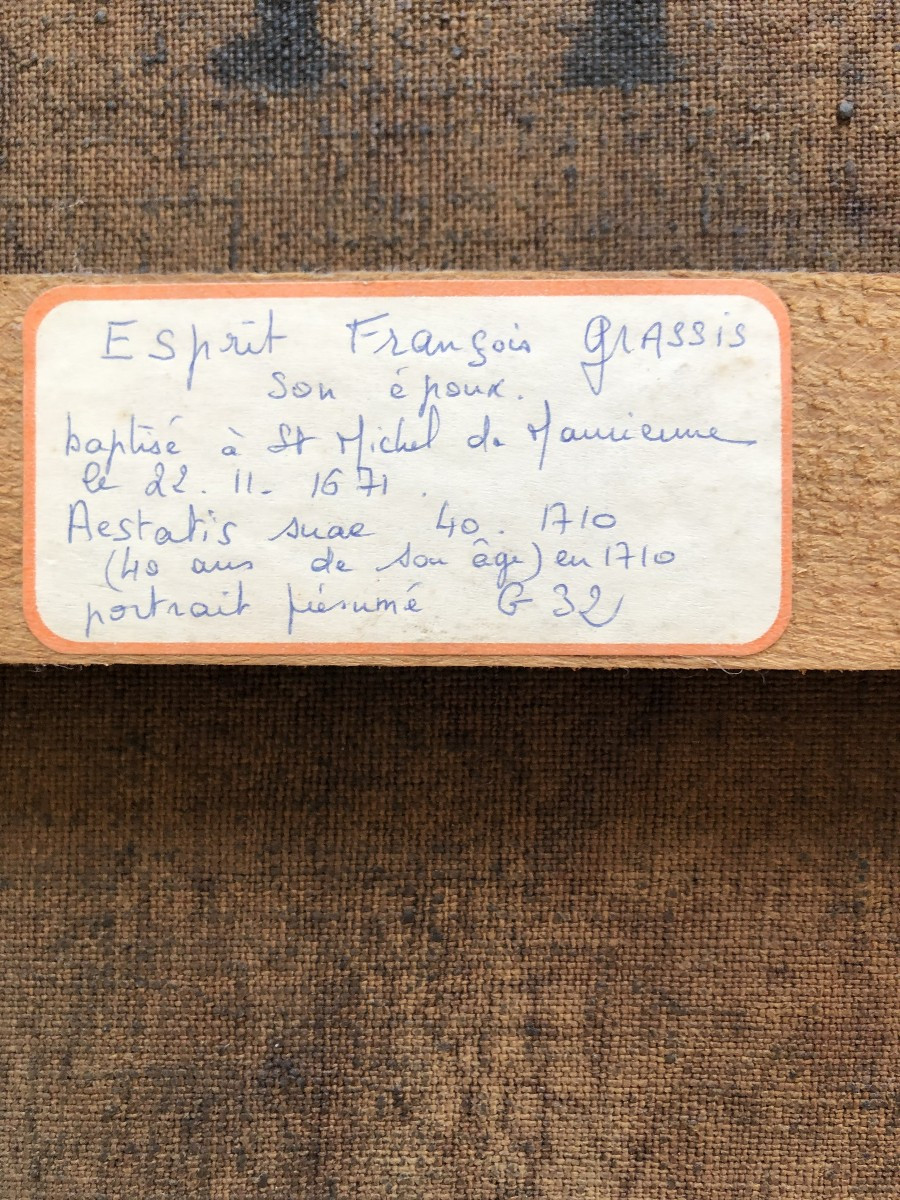 Esprit François GRASSIS
son époux.
baptisé à St Michel de Maurienne
le 22. 11. 1671.
Aestatis suae 40. 1710
(40 ans de son âge) en 1710
portrait présumé G 32